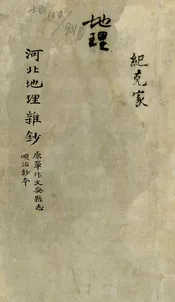 地理
紀克家
河北地理雜鈔
原單作文安縣志
順治鈔本